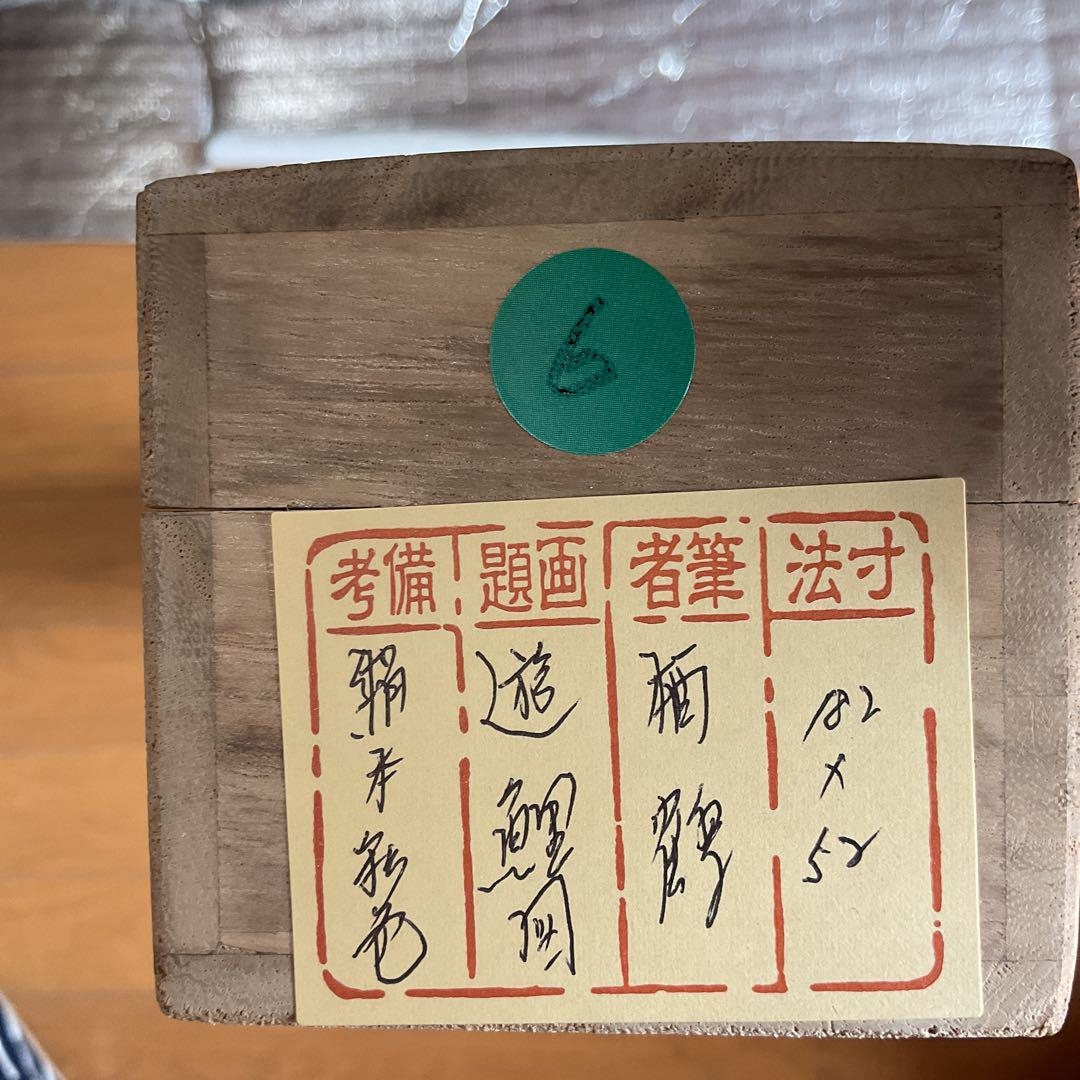 6
寸法
182
×
52
筆者
栖鶴
画題
遊鯉図
備考
絹本